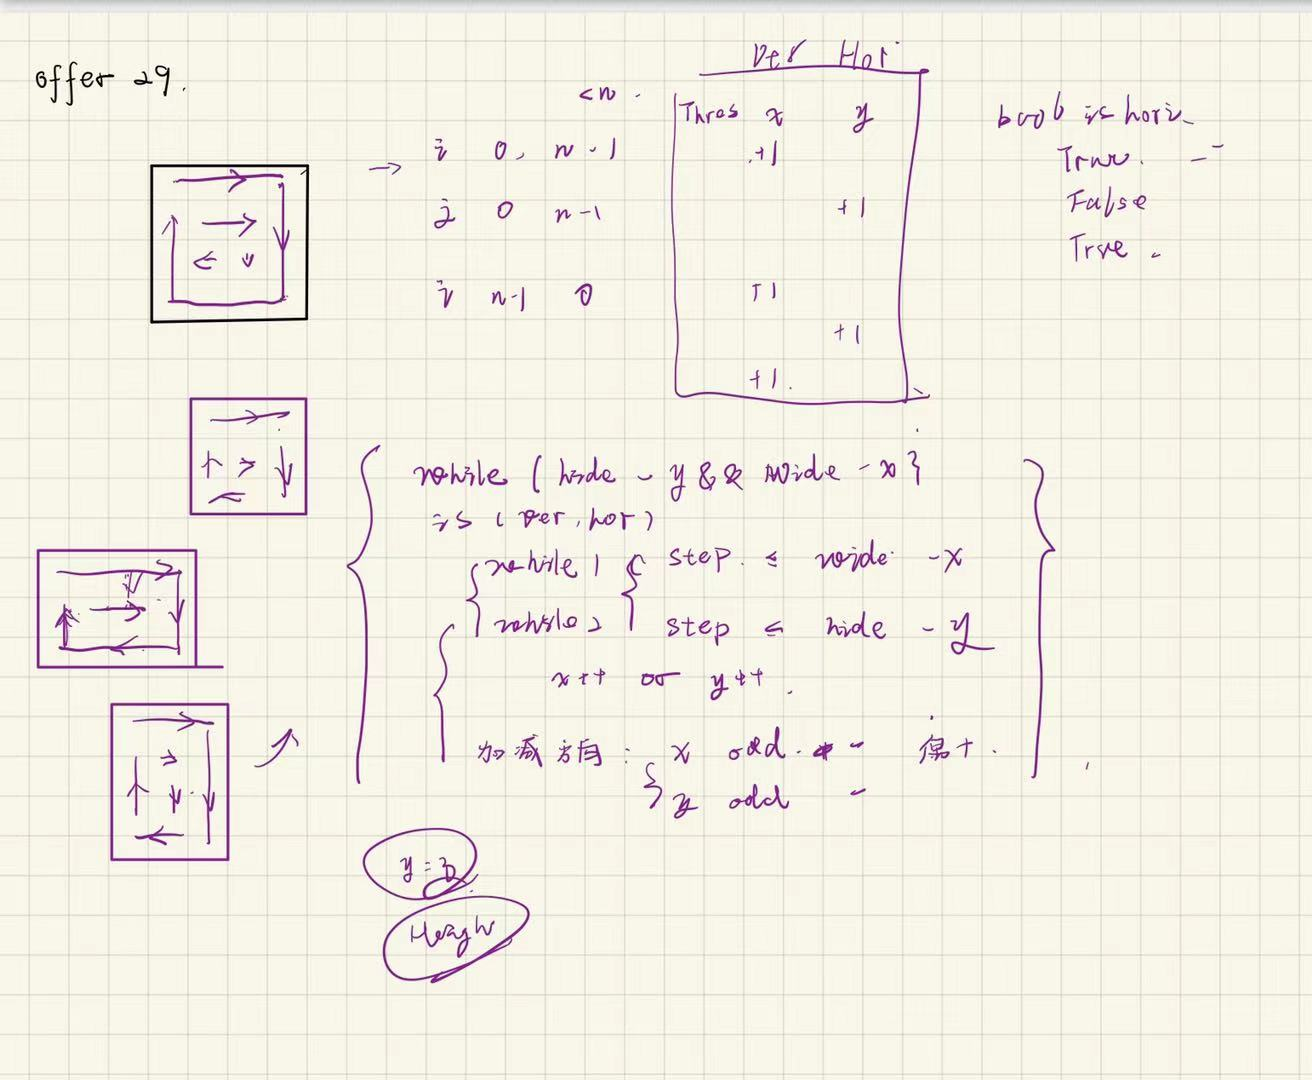 offer 29.
Ver Hor
<n
Thres x y
i 0, n-1
+1
j 0 n-1
+1
i n-1 0
+1
+1
+1.
bool is hori
True.
False
True.
while ( hide - y && wide - x }
is ( ver, hor )
while 1 { step ≤ wide - x
while 2 step ≤ hide - y
x++ or y++.
加减方向: { x odd. - 偶+.
y odd -
y = 3
Heigh